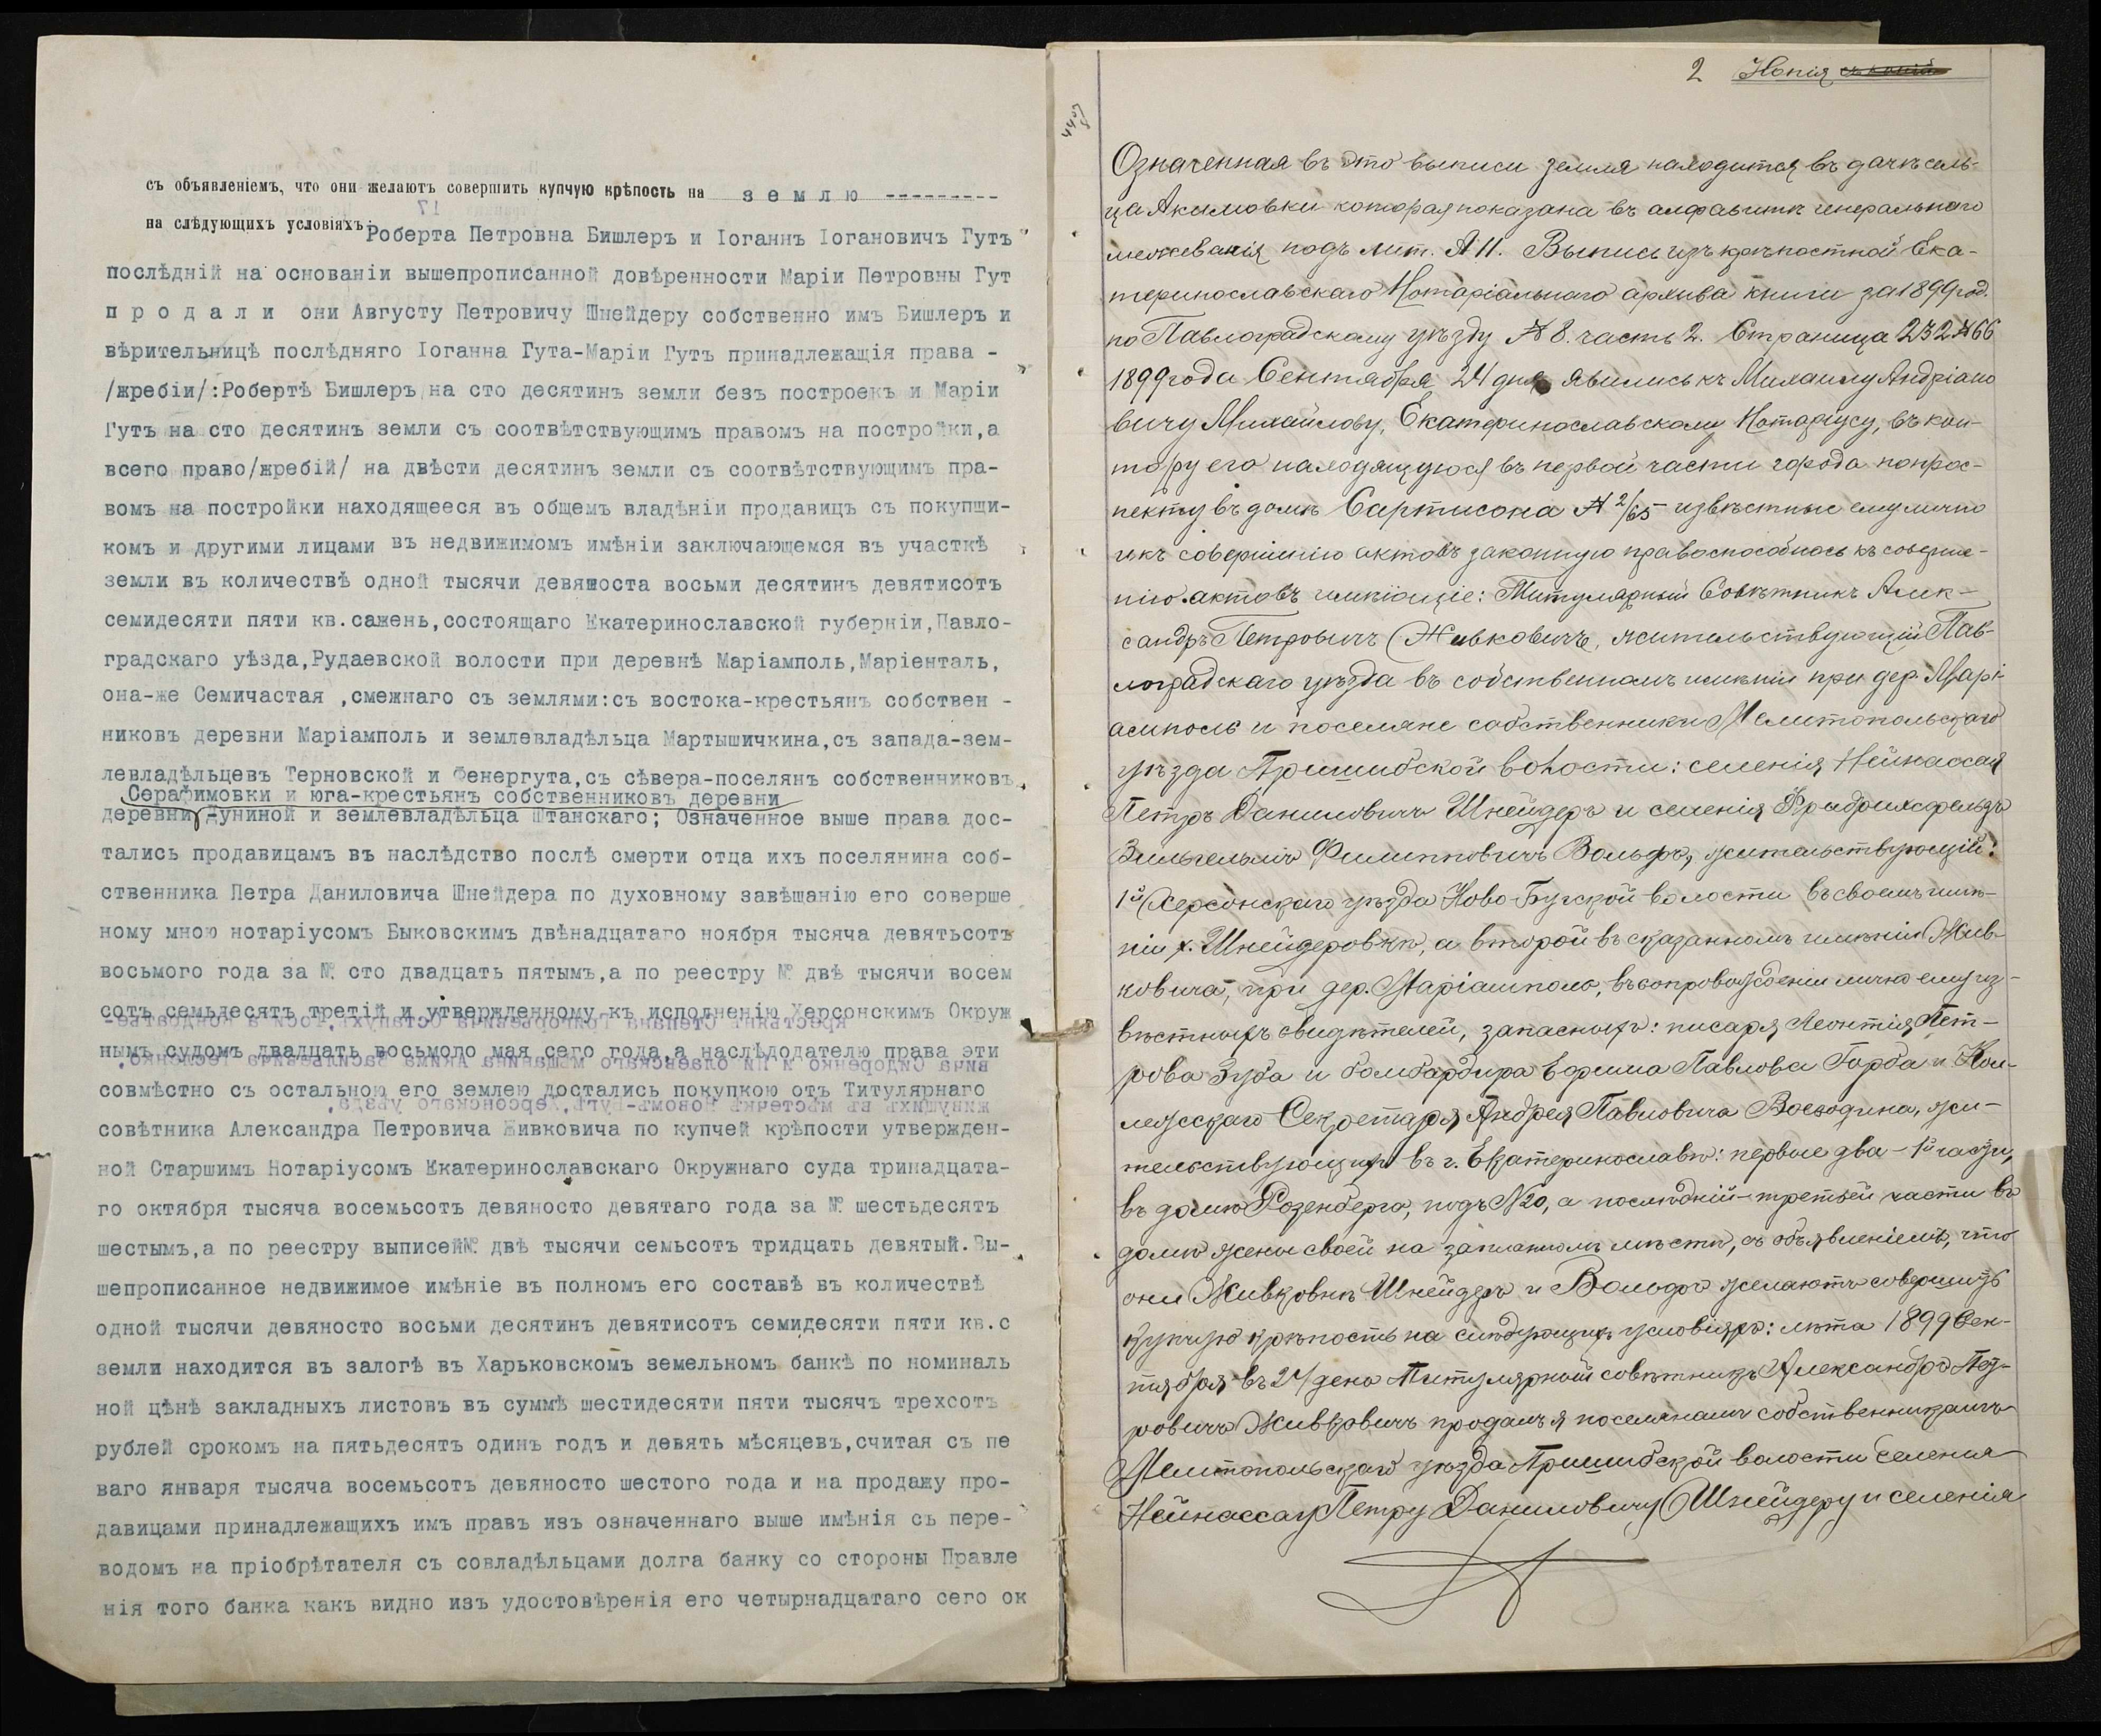 съ объявленіемъ, что они желаютъ совершить купчую крѣпость на землю ---------
на слѣдующихъ условіяхъ: Роберта Петровна Бишлеръ и Іоганнъ Іогановичъ Гутъ
послѣдній на основаніи вышепрописанной довѣренности Маріи Петровны Гут
п р о д а л и они Августу Петровичу Шнейдеру собственно имъ Бишлеръ и
вѣрительницѣ послѣдняго Іоганна Гута-Маріи Гутъ принадлежащія права -
/жребіи/:Робертѣ Бишлеръ на сто десятинъ земли безъ построекъ и Маріи
Гутъ на сто десятинъ земли съ соотвѣтствующимъ правомъ на постройки,а
всего право/жребій/ на двѣсти десятинъ земли съ соотвѣтствующимъ пра-
вомъ на постройки находящееся въ общемъ владѣніи продавицъ съ покупщи-
комъ и другими лицами въ недвижимомъ имѣніи заключающемся въ участкѣ
земли въ количествѣ одной тысячи девяноста восьми десятинъ девятисотъ
семидесяти пяти кв.сажень,состоящаго Екатеринославской губерніи,Павло-
градскаго уѣзда,Рудаевской волости при деревнѣ Маріамполь,Маріенталь,
она-же Семичастая ,смежнаго съ землями:съ востока-крестьянъ собствен -
никовъ деревни Маріамполь и землевладѣльца Мартышичкина,съ запада-зем-
левладѣльцевъ Терновской и Фенергута,съ сѣвера-поселянъ собственниковъ
Серафимовки и юга-крестьянъ собственниковъ деревни
деревни Дуниной и землевладѣльца Штанскаго; Означенное выше права дос-
тались продавицамъ въ наслѣдство послѣ смерти отца ихъ поселянина соб-
ственника Петра Даниловича Шнейдера по духовному завѣщанію его соверше
ному мною нотаріусомъ Быковскимъ двѣнадцатаго ноября тысяча девятьсотъ
восьмого года за № сто двадцать пятымъ,а по реестру № двѣ тысячи восем
сотъ семьдесятъ третій и утвержденному къ исполненію Херсонскимъ Окруж
нымъ судомъ двадцать восьмого мая сего года,а наслѣдодателю права эти
совмѣстно съ остальною его землею достались покупкою отъ Титулярнаго
совѣтника Александра Петровича Живковича по купчей крѣпости утвержден-
ной Старшимъ Нотаріусомъ Екатеринославскаго Окружнаго суда тринадцата-
го октября тысяча восемьсотъ девяносто девятаго года за № шестьдесятъ
шестымъ,а по реестру выписей№ двѣ тысячи семьсотъ тридцать девятый.Вы-
шепрописанное недвижимое имѣніе въ полномъ его составѣ въ количествѣ
одной тысячи девяносто восьми десятинъ девятисотъ семидесяти пяти кв.с
земли находится въ залогѣ въ Харьковскомъ земельномъ банкѣ по номиналь
ной цѣнѣ закладныхъ листовъ въ суммѣ шестидесяти пяти тысячъ трехсотъ
рублей срокомъ на пятьдесятъ одинъ годъ и девять мѣсяцевъ,считая съ пе
ваго января тысяча восемьсотъ девяносто шестого года и на продажу про-
давицами принадлежащихъ имъ правъ изъ означеннаго выше имѣнія съ пере-
водомъ на пріобрѣтателя съ совладѣльцами долга банку со стороны Правле
нія того банка какъ видно изъ удостовѣренія его четырнадцатаго сего ок
2 Копія
Означенная въ это выписи земля находится въ дачѣ сель-
ца Акимовки которая показана въ алфавитѣ генеральнаго
межеванія подъ лит. А 11. Выпись изъ крѣпостной Ека-
теринославскаго Нотаріальнаго архива книги за 1899 год.
по Павлоградскому уѣзду № 8. часть 2. Страница 232 № 66
1899 года Сентября 24 дня явились къ Михаилу Андріано
вичу Михайлову, Екатеринославскому Нотаріусу, въ кон-
тору его находящуюся въ первой части города по прос-
пекту въ домѣ Сартисона № 2/65 извѣстные ему лично
и къ совершенію актовъ законную правоспособнось къ соверше-
нію актовъ имѣющіе: Титулярный Совѣтникъ Алек-
сандръ Петровичъ Живковичъ, жительствующій Пав-
лоградскаго уѣзда въ собственномъ имѣніи при дер. Марі-
амполь и поселяне собственники Мелитопольскаго
уѣзда Пришибской волости: селенія Нейнассая
Петръ Даниловичъ Шнейдеръ и селенія Фридрихсфельдъ
Вильгельмъ Филипповичъ Вольфъ, жительствующій:
1й Херсонскаго уѣзда Ново-Бугской волости въ своемъ имѣ-
ніи х. Шнейдеровкѣ, а второй въ сказанномъ имѣніи Жив-
ковича, при дер. Маріамполь, въ сопровожденіи лично ему из-
вѣстныхъ свидѣтелей, запасныхъ: писаря Леонтія Пет-
рова Зуба и бомбардира Ефима Павлова Горба и Кол-
лежскаго Секретаря Андрея Павловича Воеводина, жи-
тельствующихъ въ г. Екатеринославѣ: первые два - 1й части,
въ домѣ Розенберга, подъ №20, а послѣдній - третьей части въ
домѣ жены своей на заплатномъ мѣстѣ, съ объявленіемъ, что
они Живковичъ Шнейдеръ и Вольфъ желаютъ совершить
купчую крѣпость на слѣдующихъ условіяхъ: лѣта 1899 Сен-
тября въ 24 день Титулярный совѣтникъ Александръ Пет-
ровичъ Живковичъ продалъ я поселянамъ собственникамъ
Мелитопольскаго уѣзда Пришибской волости селенія
Нейнассау Петру Даниловичу Шнейдеру и селенія